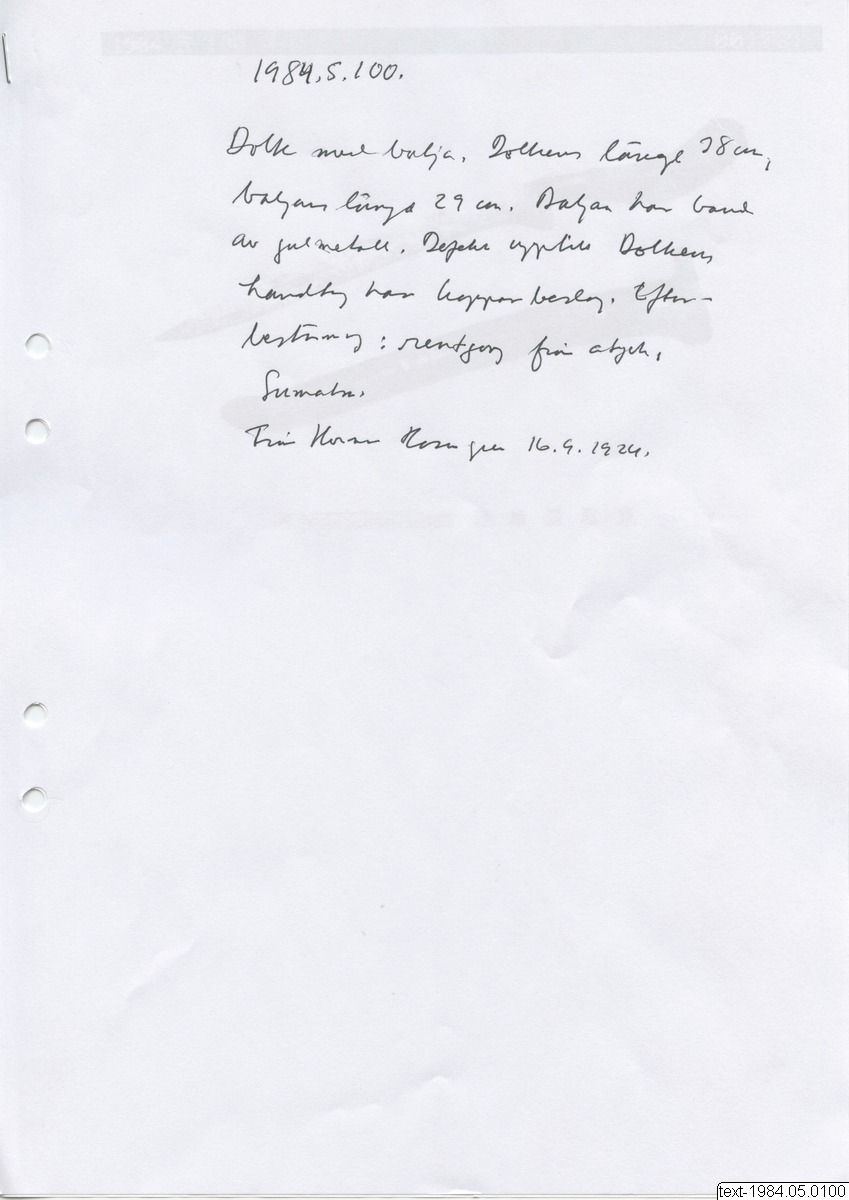 1984.5.100.
Dolk med balja. Dolkens längd 38 cm,
baljans längd 29 cm. Baljan har band
av gulmetall. Defekt upptill. Dolkens
handtag har kopparbeslag. Efter-
bestämning: rentjong från atjeh,
Sumatra.
Från Herman Rosengren 16.9.1924.
text-1984.05.0100